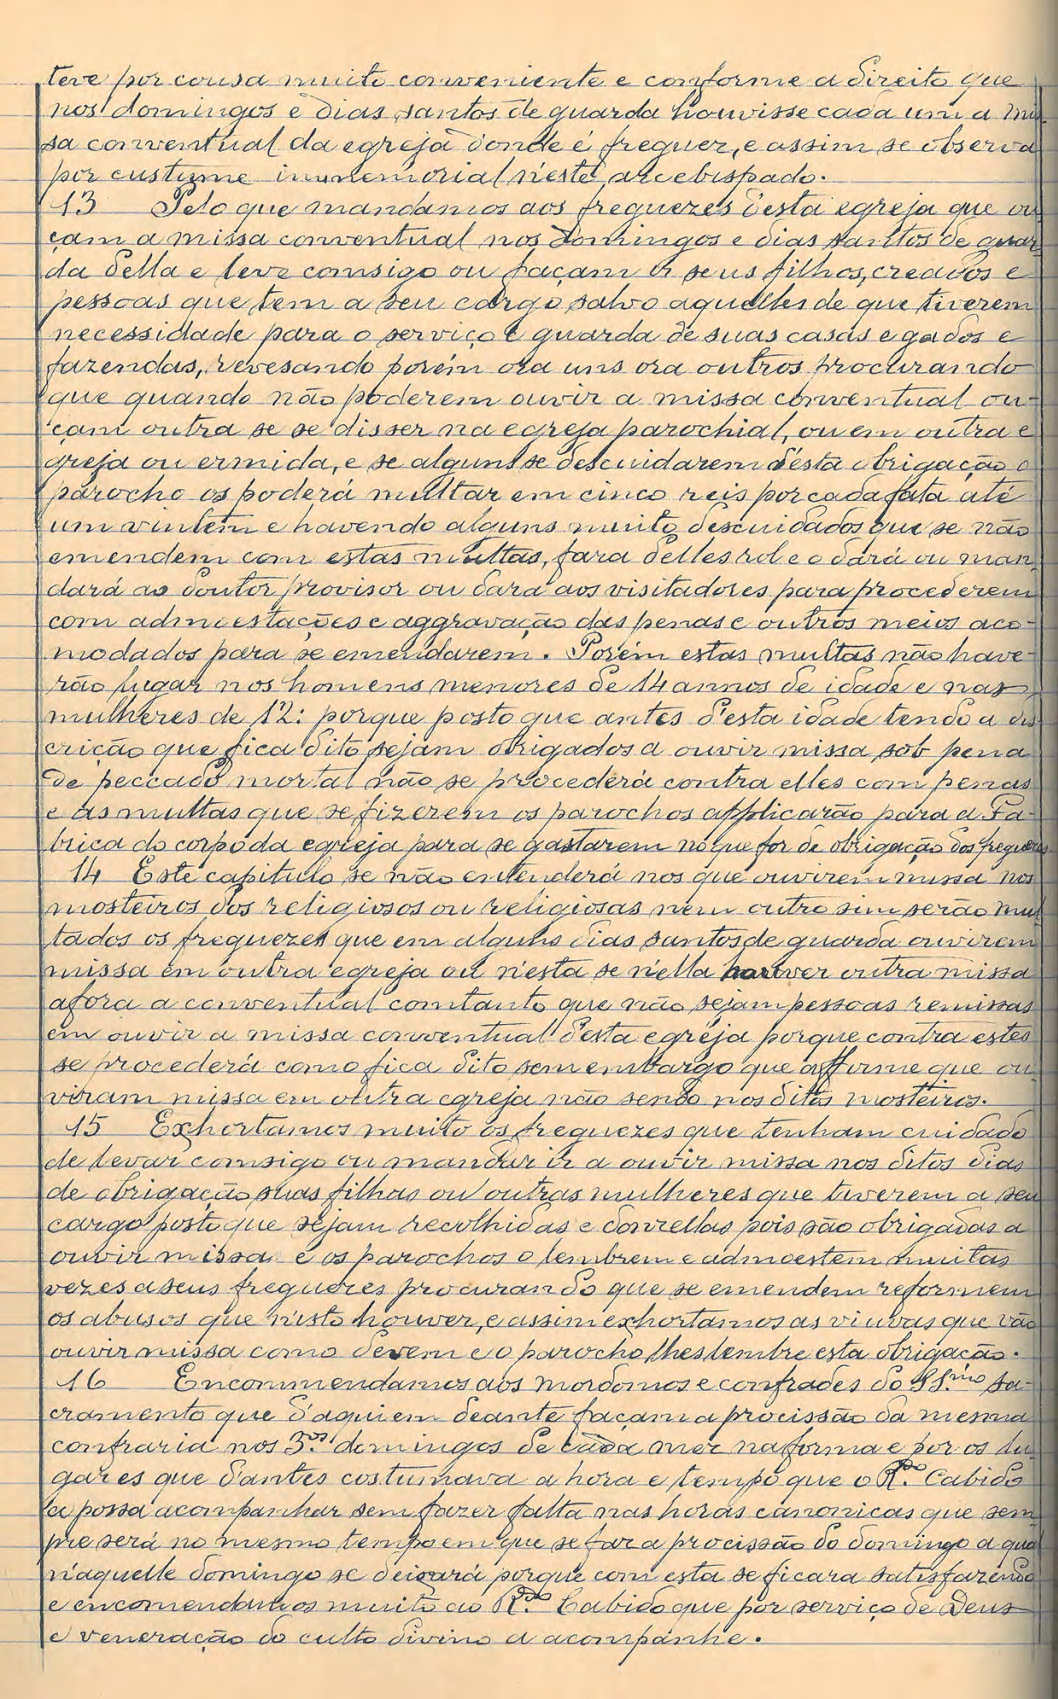 teve por cousa muito conveniente e conforme a direito que
nos domingos e dias santos de guarda houvisse cada um a mis
sa conventual da egreja donde é freguez, e assim se observa
por custume immemorial n'este arcebispado.
13 Pelo que mandamos aos freguezes desta egreja que ou
çam a missa conventual nos Domingos e dias santos de guar
da della e leve comsigo ou façam ir seus filhos, creados e
pessoas que tem a seu cargo salvo aquelles de que tiverem
necessidade para o serviço e guarda de suas casas e gados e
fazendas, revesando porém ora uns ora outros procurando
que quando não poderem ouvir a missa conventual ou-
çam outra se se disser na egreja parochial, ou em outra e
greja ou ermida, e se alguns se descuidarem d'esta obrigação o
parocho os poderá multar em cinco reis por cada fata até
um vintem e havendo alguns muito descuidados que se não
emendem com estas multas, fara delles rol e o dará ou man
dará ao doutor provisor ou dara aos visitadores para procederem
com admoestações e aggravação das penas e outros meios aco-
modados para se emendarem. Porém estas multas não have-
rão lugar nos homens menores de 14 annos de idade e nas
mulheres de 12: porque posto que antes d'esta idade tendo a dis
crição que fica dito sejam obrigados a ouvir missa sob pena
de peccado mortal não se procederá contra elles com penas
e as multas que se fizerem os parochos applicarão para a Fa-
brica do corpo da egreja para se gastarem no que for de obrigação dos freguezes.
14 Este capitulo se não entenderá nos que ouvirem missa nos
mosteiros dos religiosos ou religiosas nem outro sim serão mul
tados os freguezes que em alguns dias santos de guarda ouvirem
missa em outra egreja ou n'esta se n'ella houver outra missa
afora a conventual comtanto que não sejam pessoas remissas
em ouvir a missa conventual d'esta egreja porque contra estes
se procederá como fica dito sem embargo que affirme que ou
viram missa em outra egreja não sendo nos ditos mosteiros.
15 Exhortamos muito os freguezes que tenham cuidado
de levar comsigo ou mandar ir a ouvir missa nos ditos dias
de obrigação suas filhas ou outras mulheres que tiverem a seu
cargo posto que sejam recolhidas e donzellas pois são obrigadas a
ouvir missa e os parochos o lembrem e admoestem muitas
vezes a seus freguezes procurando que se emendem reformem
os abusos que n'isto houver, e assim exhortamos as viuvas que vão
ouvir missa como devem e o parocho lhes lembre esta obrigação.
16 Encommendamos aos mordomos e confrades do SS.mo Sa-
cramento que d'aqui em deante façam a procissão da mesma
confraria nos 3.os domingos de cada mez na forma e por os lu-
gares que d'antes costumava a hora e tempo que o R.do Cabido
a possa acompanhar sem fazer falta nas horas canonicas que sem
pre será no mesmo tempo em que se faz a procissão do domingo a qual
n'aquelle domingo se deixará porque com esta se ficara satisfazendo
e encomendamos muito ao R.do Cabido que por serviço de Deus
e veneração do culto divino a acompanhe.